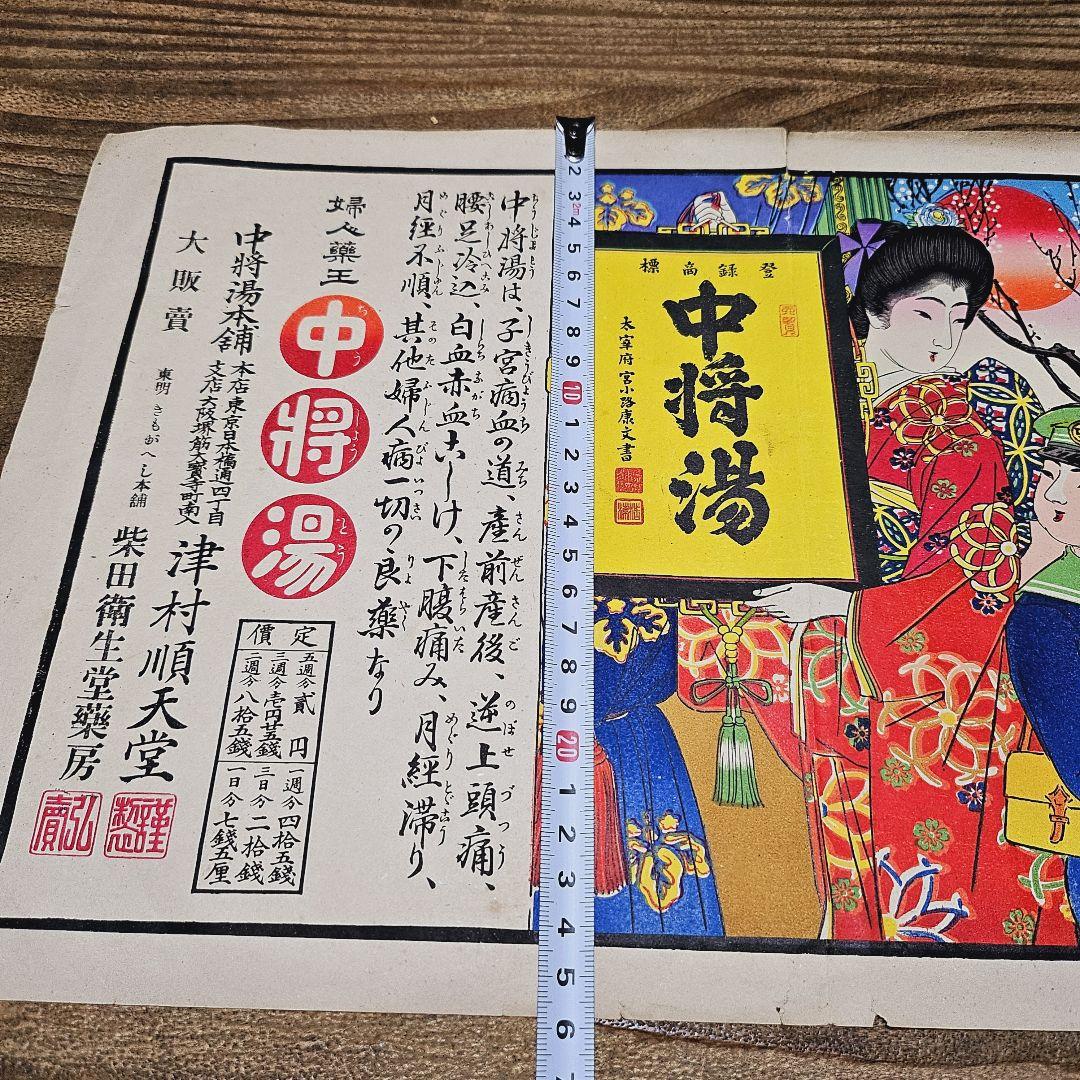 登録商標
中将湯
太宰府 宮小路康文書
中将湯は、子宮病血の道、産前産後、逆上頭痛、
腰足冷込、白血赤血こしけ、下腹痛み、月經滞り、
月經不順、其他婦人病一切の良薬なり
婦人薬王
中將湯
ちうしょうとう
定價
五週分貳円
三週分壱円廿五錢
二週分八拾五錢
一週分四拾五錢
三日分二拾錢
一日分七錢五厘
中将湯本舗
本店東京日本橋通四丁目
支店大阪堺筋大寳寺町南入
津村順天堂
謹製
大販賣
東明 きもがへし本舗
柴田衛生堂薬房
弘賣
2
3
2m
4
5
6
7
8
9
10
1
2
3
4
5
6
7
8
9
20
1
2
3
4
5
6
7